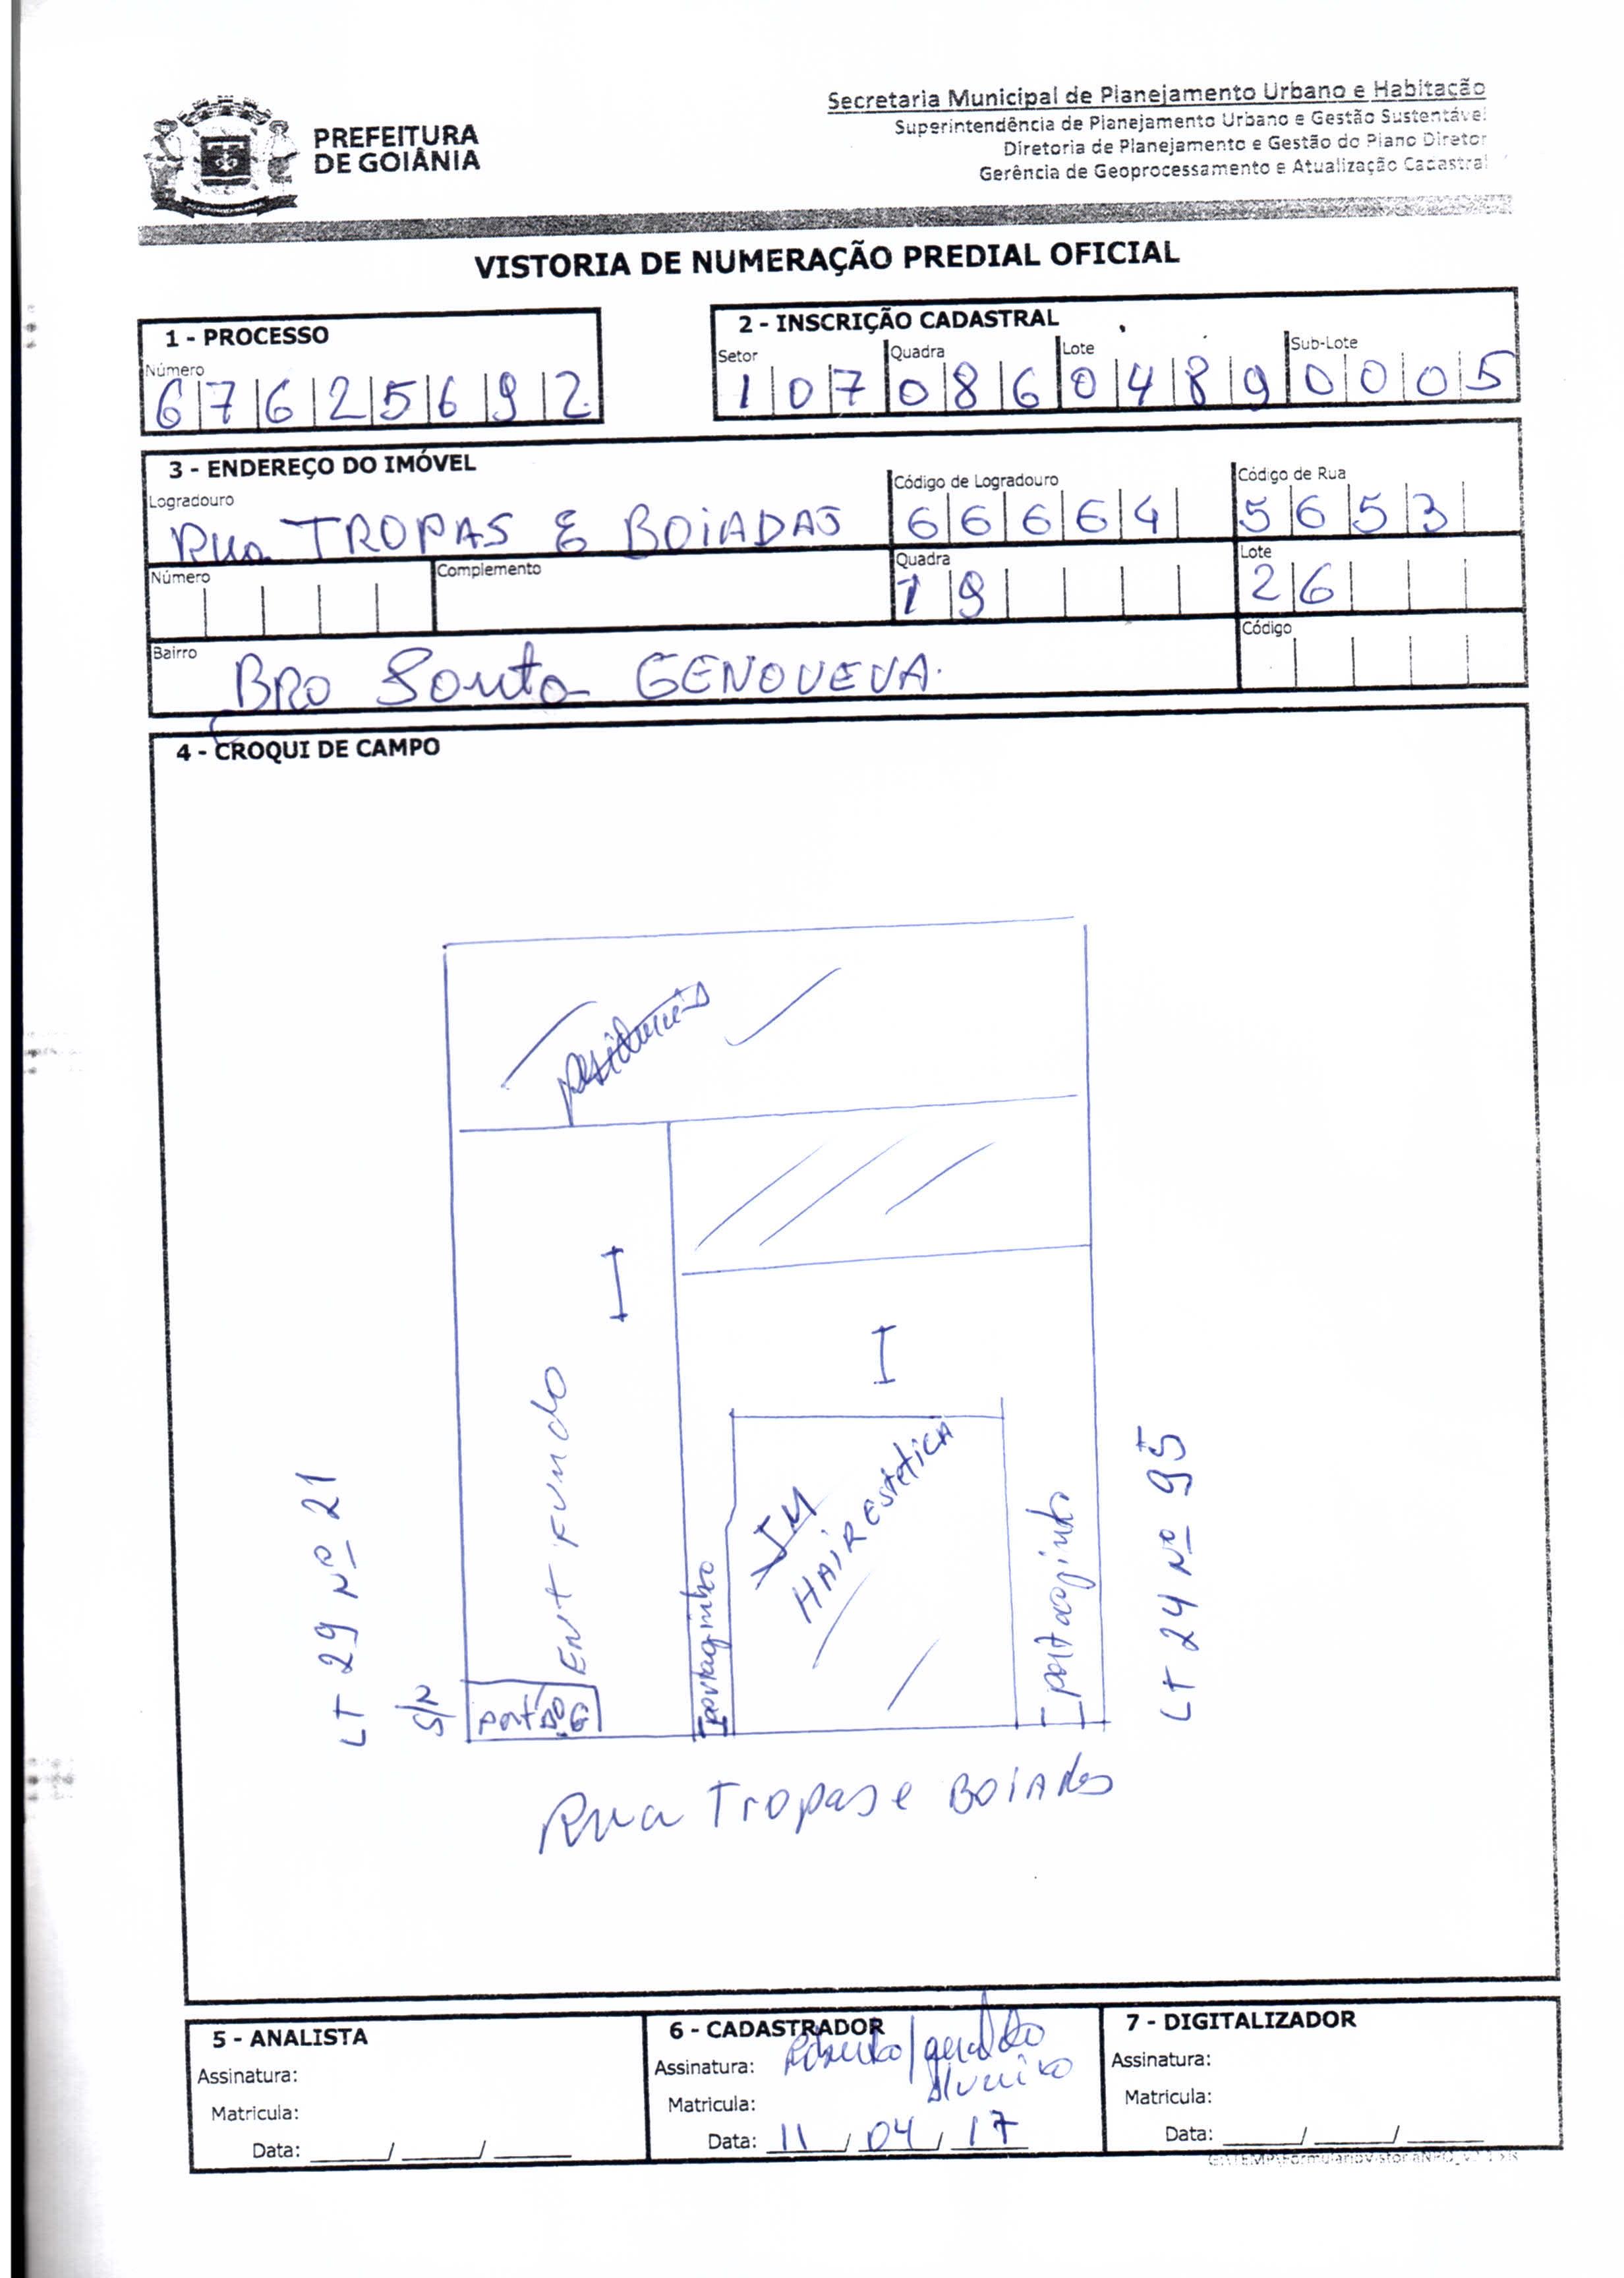 PREFEITURA
DE GOIÂNIA
Secretaria Municipal de Planejamento Urbano e Habitação
Superintendência de Planejamento Urbano e Gestão Sustentável
Diretoria de Planejamento e Gestão do Plano Diretor
Gerência de Geoprocessamento e Atualização Cadastral
VISTORIA DE NUMERAÇÃO PREDIAL OFICIAL
1 - PROCESSO
Número
6 7 6 2 5 6 9 2
2 - INSCRIÇÃO CADASTRAL
Setor Quadra Lote Sub-Lote
1 0 7 0 8 6 0 4 8 9 0 0 0 5
3 - ENDEREÇO DO IMÓVEL
Logradouro Código de Logradouro Código de Rua
Rua TROPAS E BOIADAS 6 6 6 6 4 5 6 5 3
Número Complemento Quadra Lote
19 26
Bairro Código
BRO Santa GENOVEVA.
4 - CROQUI DE CAMPO
residencia
I
I
Ent Fundo
JM
HAIR Estética
portaginho
portaginho
LT 29 Nº 21
S/N
LT 24 Nº 95
Rua Tropas e BOIADAS
5 - ANALISTA
Assinatura:
Matricula:
Data: ____/____/____
6 - CADASTRADOR
Assinatura:
Matricula:
Data: 11/04/17
7 - DIGITALIZADOR
Assinatura:
Matricula:
Data: ____/____/____